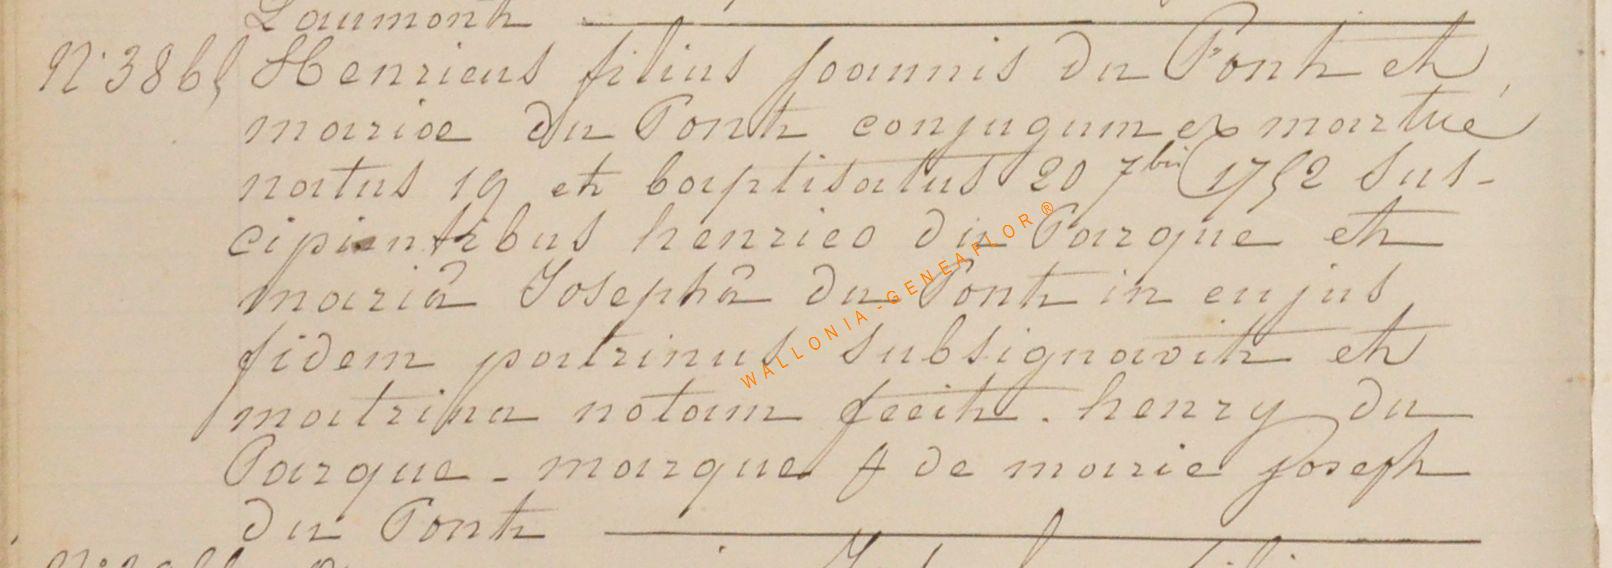 Laumont
N° 3865 Henricus filius joannis du Pont et
mariæ du Pont conjugum ex martué
natus 19 et baptisatus 20 7bris 1752 Sus-
cipientibus henrico du Parque et
mariâ Josephâ du Pont in cujus
fidem patrinus subsignavit et
matrina notam fecit. henry du
Parque - marque + de marie joseph
du Pont
WALLONIA-GENEAFLOR®